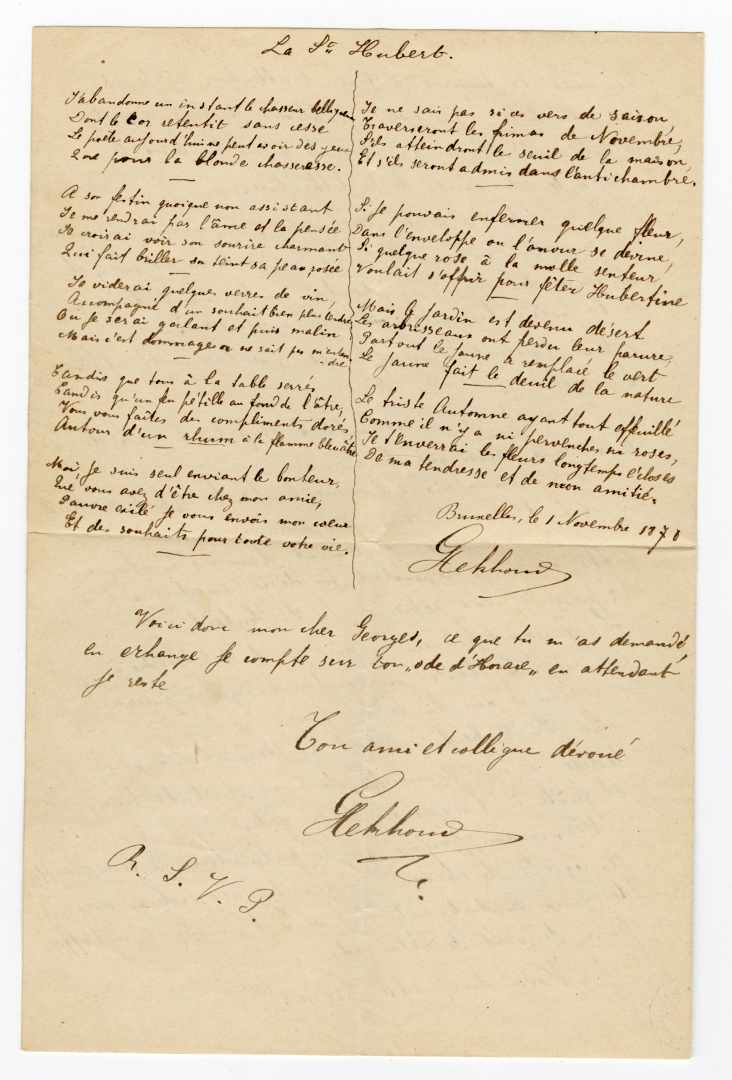 La Ste Hubert.
J'abandonne un instant le chasseur belliqueux
Dont le cor retentit sans cesse
Le poète aujourd'hui ne peut avoir des yeux
Que pour la blonde chasseresse.
A son festin quoique non assistant
Je me rendrai par l'âme et la pensée
Je croirai voir son sourire charmant
Qui fait briller son teint sa peau rosée
Je viderai quelques verres de vin,
Accompagné d'un souhait bien plus tendre
Où je serai galant et puis malin
Mais c'est dommage on ne sait pas m'entendre
Tandis que tous à la table serrés
Tandis qu'un feu pétille au fond de l'âtre,
Vous vous faites des compliments dorés
Autour d'un rhum à la flamme bleuâtre
Moi, je suis seul enviant le bonheur,
Que vous avez d'être chez mon amie,
Pauvre exilé je vous envois mon cœur
Et des souhaits pour toute votre vie.
Je ne sais pas si ces vers de saison,
Traverseront les frimas de Novembre,
S'ils atteindront le seuil de la maison,
Et s'ils seront admis dans l'antichambre.
Si je pouvais enfermer quelque fleur,
Dans l'enveloppe où l'amour se devine,
Si quelque rose à la molle senteur
Voulait s'offrir pour fêter Hubertine
Mais le jardin est devenu désert
Les arbrisseaux ont perdu leur parure,
Partout le jaune a remplacé le vert
Le jaune fait le deuil de la nature
Le triste Automne ayant tout effeuillé
Comme il n'y a ni pervenches ni roses,
Je t'enverrai les fleurs longtemps écloses
De ma tendresse et de mon amitié.
Bruxelles, le 1 Novembre 1870
GEekhoud
Voici donc mon cher Georges, ce que tu m'as demandé,
en échange je compte sur ton „ode d'Horace„ en attendant
je reste
Ton ami et collègue dévoué
GEekhoud
R. S. V. P.